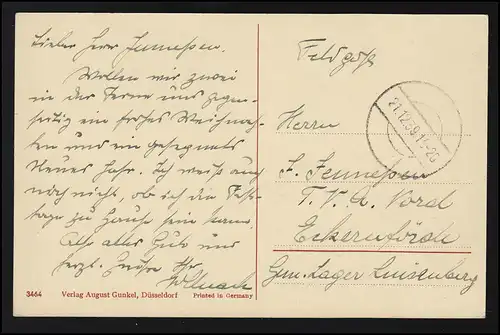 Lieber Herr Jennessen.
Wollen wir zwei
in der Ferne uns gegen-
seitig ein frohes Weihnach-
ten und ein gesegnets
Neues Jahr. Ich weiß auch
noch nicht, ob ich die Fest-
tage zu Hause sein kann
Also alles Gute und
herzl. Grüße Ihr
Feldpost
21.12.39.17-20
Herrn
F. Jennessen
T. V. A. Nord
Eckernförde
Gem. Lager Luisenberg
3464 Verlag August Gunkel, Düsseldorf Printed in Germany